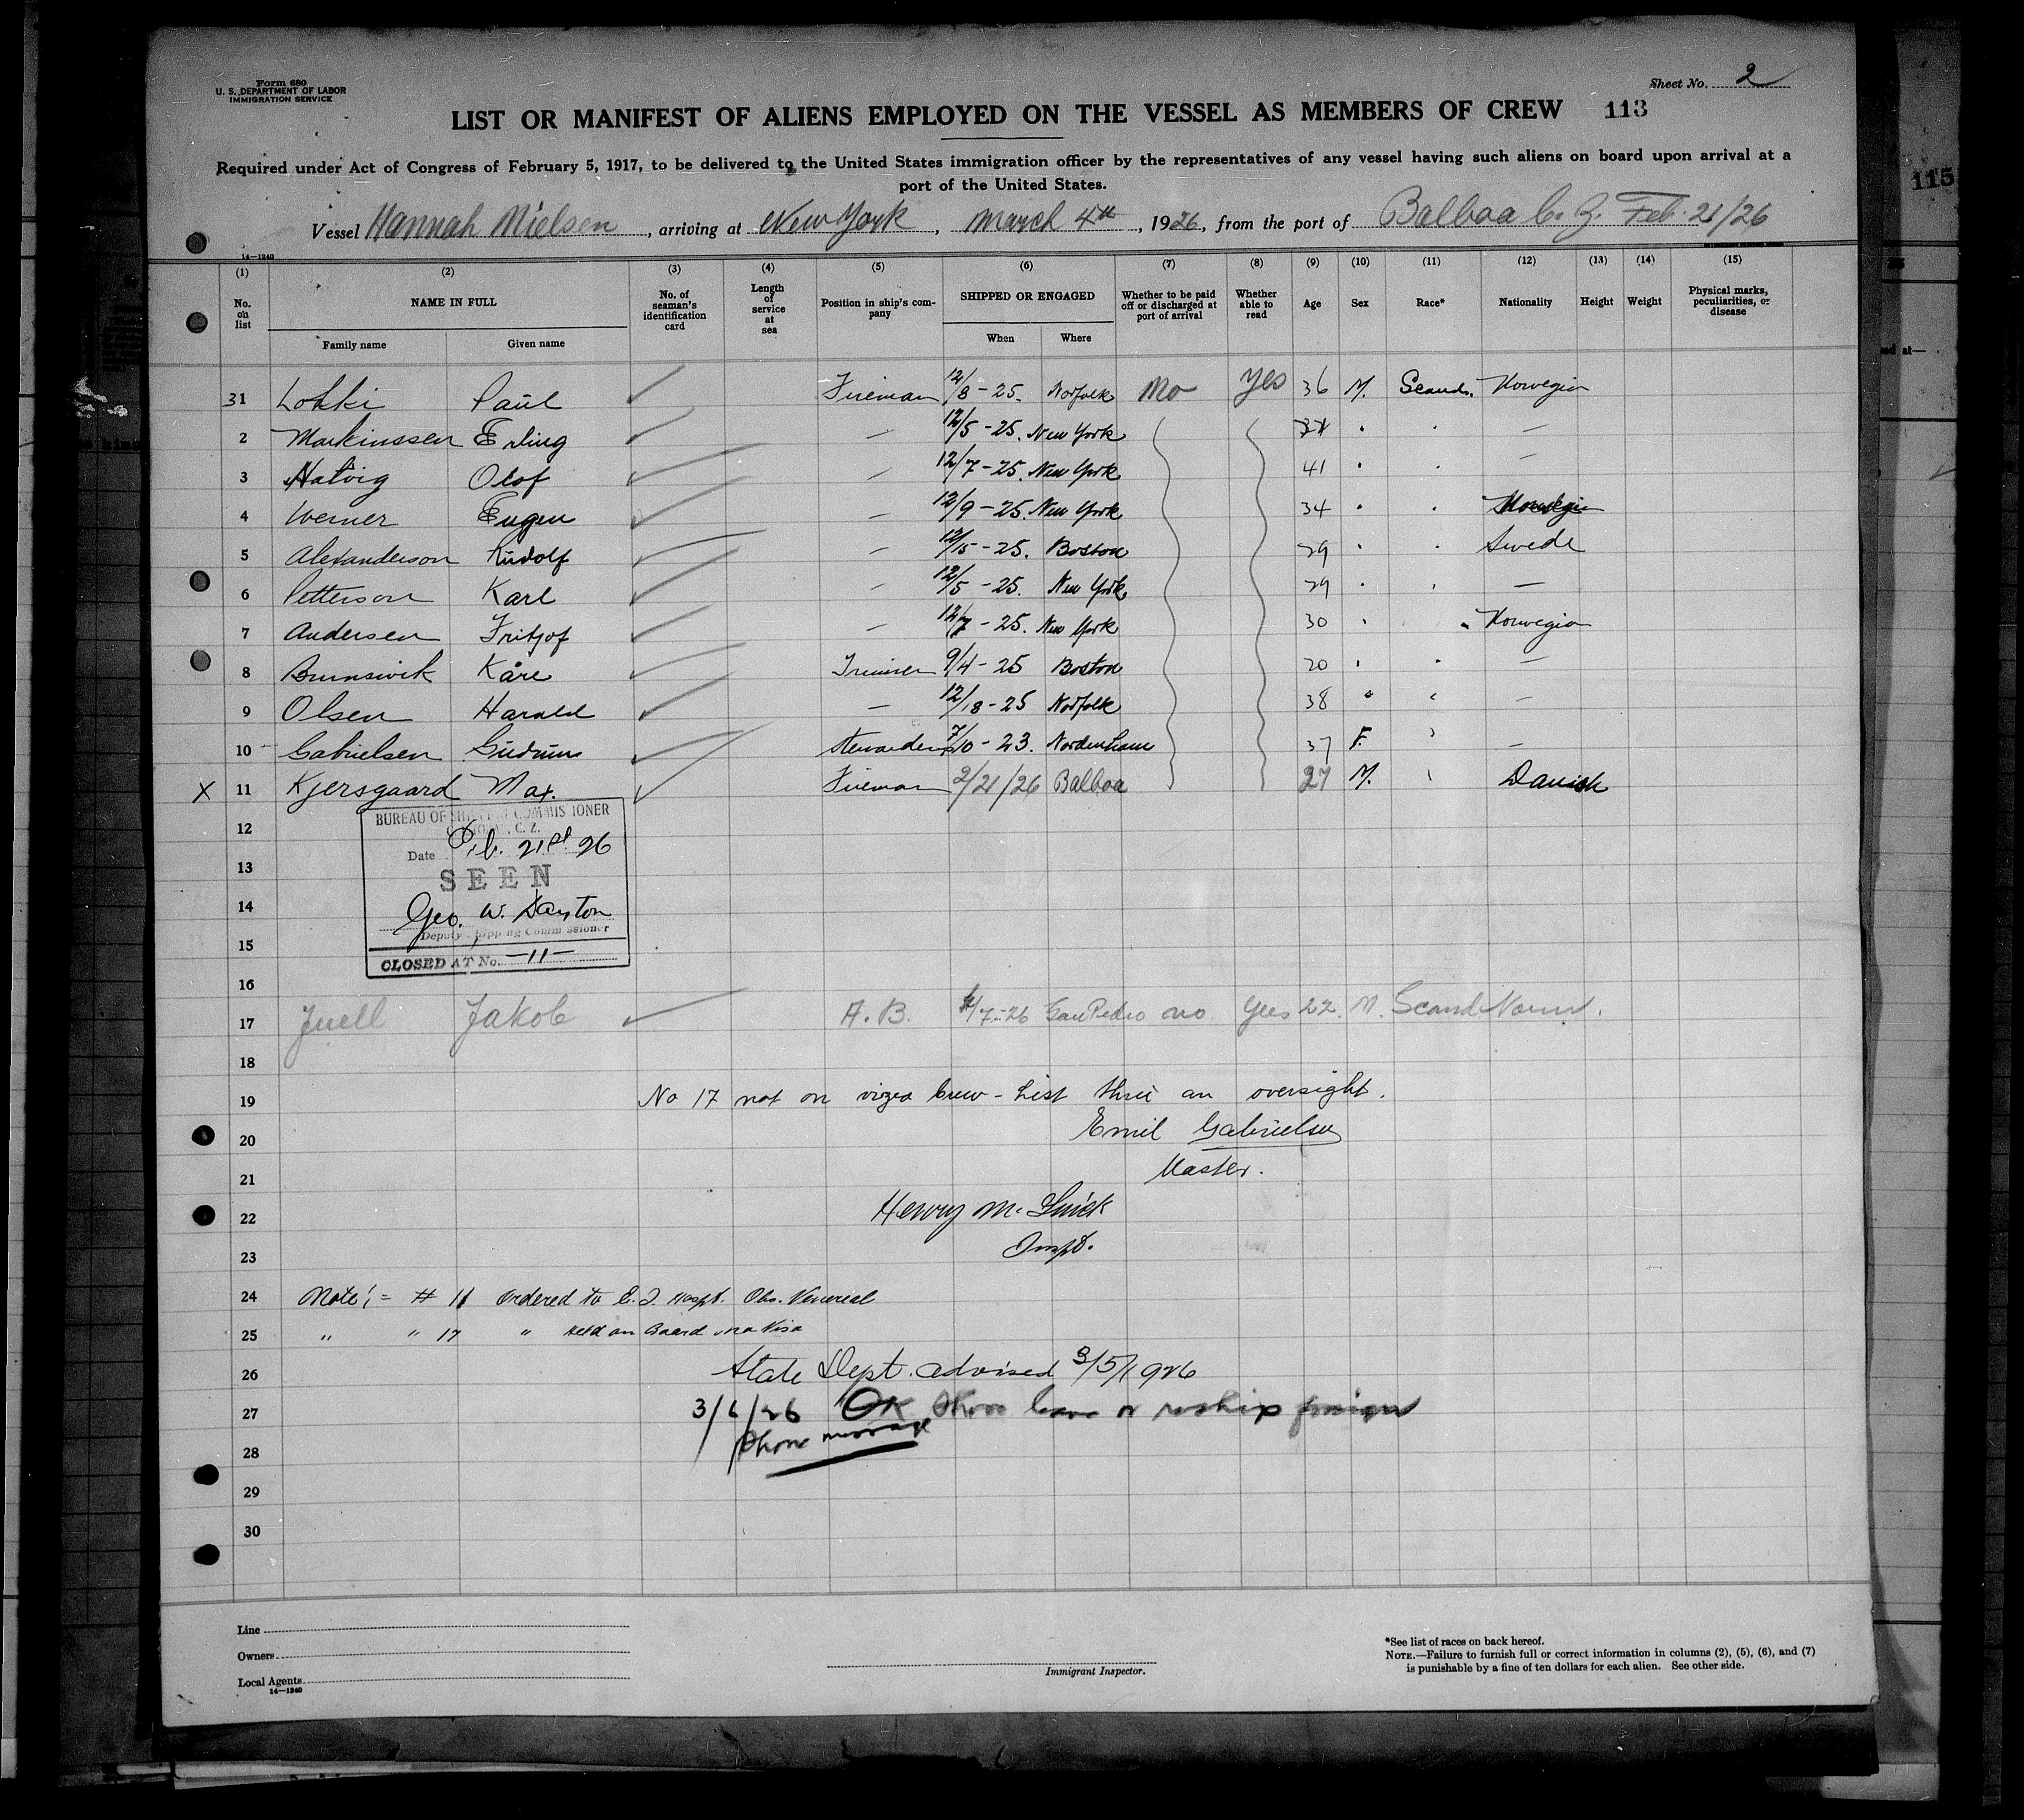 Form 680
U. S. DEPARTMENT OF LABOR
IMMIGRATION SERVICE
Sheet No. 2
LIST OR MANIFEST OF ALIENS EMPLOYED ON THE VESSEL AS MEMBERS OF CREW 113
Required under Act of Congress of February 5, 1917, to be delivered to the United States immigration officer by the representatives of any vessel having such aliens on board upon arrival at a
port of the United States.
115
Vessel Hannah Nielsen, arriving at New York, March 4th, 1926, from the port of Balboa C. Z. Feb. 21/26
14—1240
(1) (2) (3) (4) (5) (6) (7) (8) (9) (10) (11) (12) (13) (14) (15)
No. on list NAME IN FULL Family name Given name No. of seaman's identification card Length of service at sea Position in ship's company SHIPPED OR ENGAGED When Where Whether to be paid off or discharged at port of arrival Whether able to read Age Sex Race* Nationality Height Weight Physical marks, peculiarities, or disease
31 Lokki Paul Fireman 12/8-25. Norfolk No Yes 36 M. Scand. Norwegia
2 Markinssen Erling — 12/5-25. New York —
3 Hatvig Olof — 12/7-25 New York 41 —
4 Werner Eugen — 12/9-25. New York 34 Norwegia
5 Alexanderson Rudolf — 12/15-25. Boston 29 Swede
6 Petterson Karl — 12/5-25. New York 29 —
7 Andersen Fritjof — 12/7-25. New York 30 Norwegia
8 Brunsvik Kåre Trimmer 9/4-25 Boston 20 —
9 Olsen Harald — 12/18-25 Norfolk 38 —
10 Gabrielsen Gudrun Stewardess 7/10-23. Nordenham 37 F. —
X 11 Kjersgaard Max. Fireman 2/21/26 Balboa 27 M. Danish
BUREAU OF SHIPPING COMMISSIONER
C. Z.
12
Date Feb. 21st 26
13
SEEN
14
Geo. W.
15
Deputy Shipping Commissioner
CLOSED AT No. —11—
16
17 Juell Jakob A. B. /7-26 San Pedro no Yes 22. M. Scand Norw.
18
19 No 17 not on vized Crew-List thru an oversight.
20 Emil Gabrielsen
21 Master.
22 Henry M.
23 Inspt.
24 Note:= # 11 Ordered to E. I. Hospt. Obs. Venereal
25 " " 17 " Held on Board no Visa
26 State Dept. advised 3/5/1926
27 3/6/26 OK Shore leave or reship foreign
28 Phone message
29
30
Line
Owners
Local Agents
14—1240
Immigrant Inspector.
*See list of races on back hereof.
NOTE.—Failure to furnish full or correct information in columns (2), (5), (6), and (7)
is punishable by a fine of ten dollars for each alien. See other side.